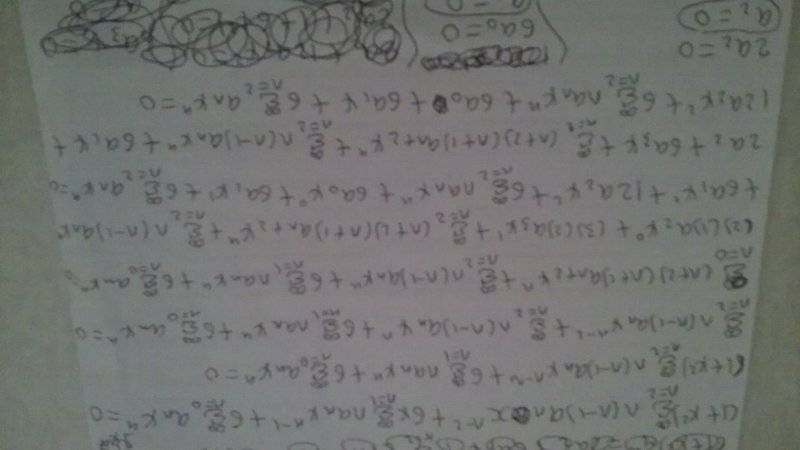 (1+x²) ∞Σn=2 n(n-1)aₙxⁿ⁻² + 6x ∞Σn=1 naₙxⁿ⁻¹ + 6 ∞Σn=0 aₙxⁿ = 0
(1+x²) ∞Σn=2 n(n-1)aₙxⁿ⁻² + 6 ∞Σn=1 naₙxⁿ + 6 ∞Σn=0 aₙxⁿ = 0
∞Σn=2 n(n-1)aₙxⁿ⁻² + ∞Σn=2 n(n-1)aₙxⁿ + 6 ∞Σn=1 naₙxⁿ + 6 ∞Σn=0 aₙxⁿ = 0
Σn=0 (n+2)(n+1)aₙ₊₂xⁿ + ∞Σn=2 n(n-1)aₙxⁿ + 6 ∞Σn=1 naₙxⁿ + 6 ∞Σn=0 aₙxⁿ
(2)(1)a₂x⁰ + (3)(2)a₃x¹ + ∞Σn=2 (n+2)(n+1)aₙ₊₂xⁿ + ∞Σn=2 n(n-1)aₙxⁿ
+ 6a₁x¹ + 12a₂x² + 6 ∞Σn=2 naₙxⁿ + 6a₀x⁰ + 6a₁x¹ + 6 ∞Σn=2 aₙxⁿ = 0
2a₂ + 6a₃x + ∞Σn=2 (n+2)(n+1)aₙ₊₂xⁿ + ∞Σn=2 n(n-1)aₙxⁿ + 6a₁x +
12a₂x² + 6 ∞Σn=2 naₙxⁿ + 6a₀ + 6a₁x + 6 ∞Σn=2 aₙxⁿ = 0
2a₂ = 0 6a₀ = 0
a₂ = 0